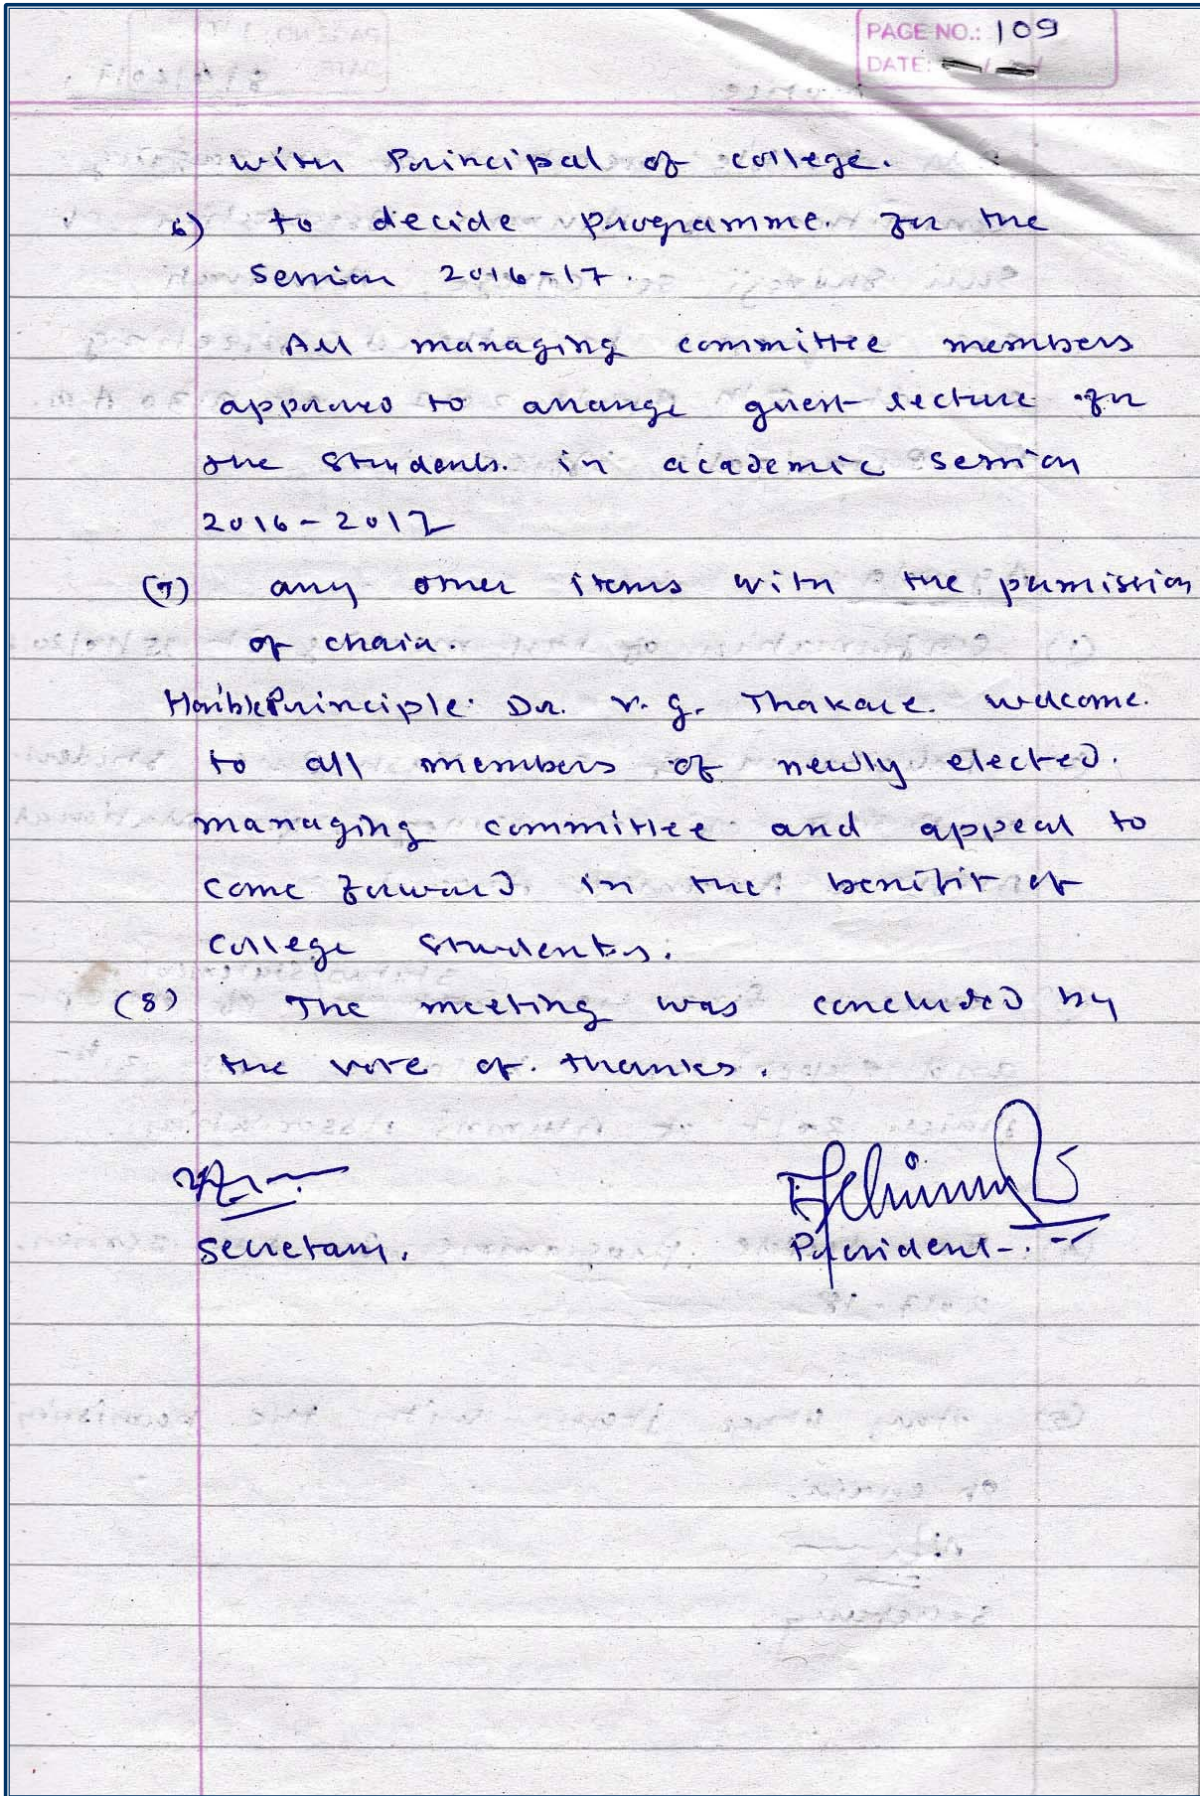 PAGE NO.: 109
DATE:
with Principal of college.
6) to decide programme. for the
Session 2016-17.
All managing committee members
approved to arrange guest lecture for
the students. in academic session
2016-2017
(7) any other items with the permission
of chair.
Hon'ble Principle. Dr. V. G. Thakare. welcome.
to all members of newly elected.
managing committee and appeal to
come forward in the. benifit of
College students.
(8) The meeting was concluded by
the vote of. thanks.
Secretary.
President-.